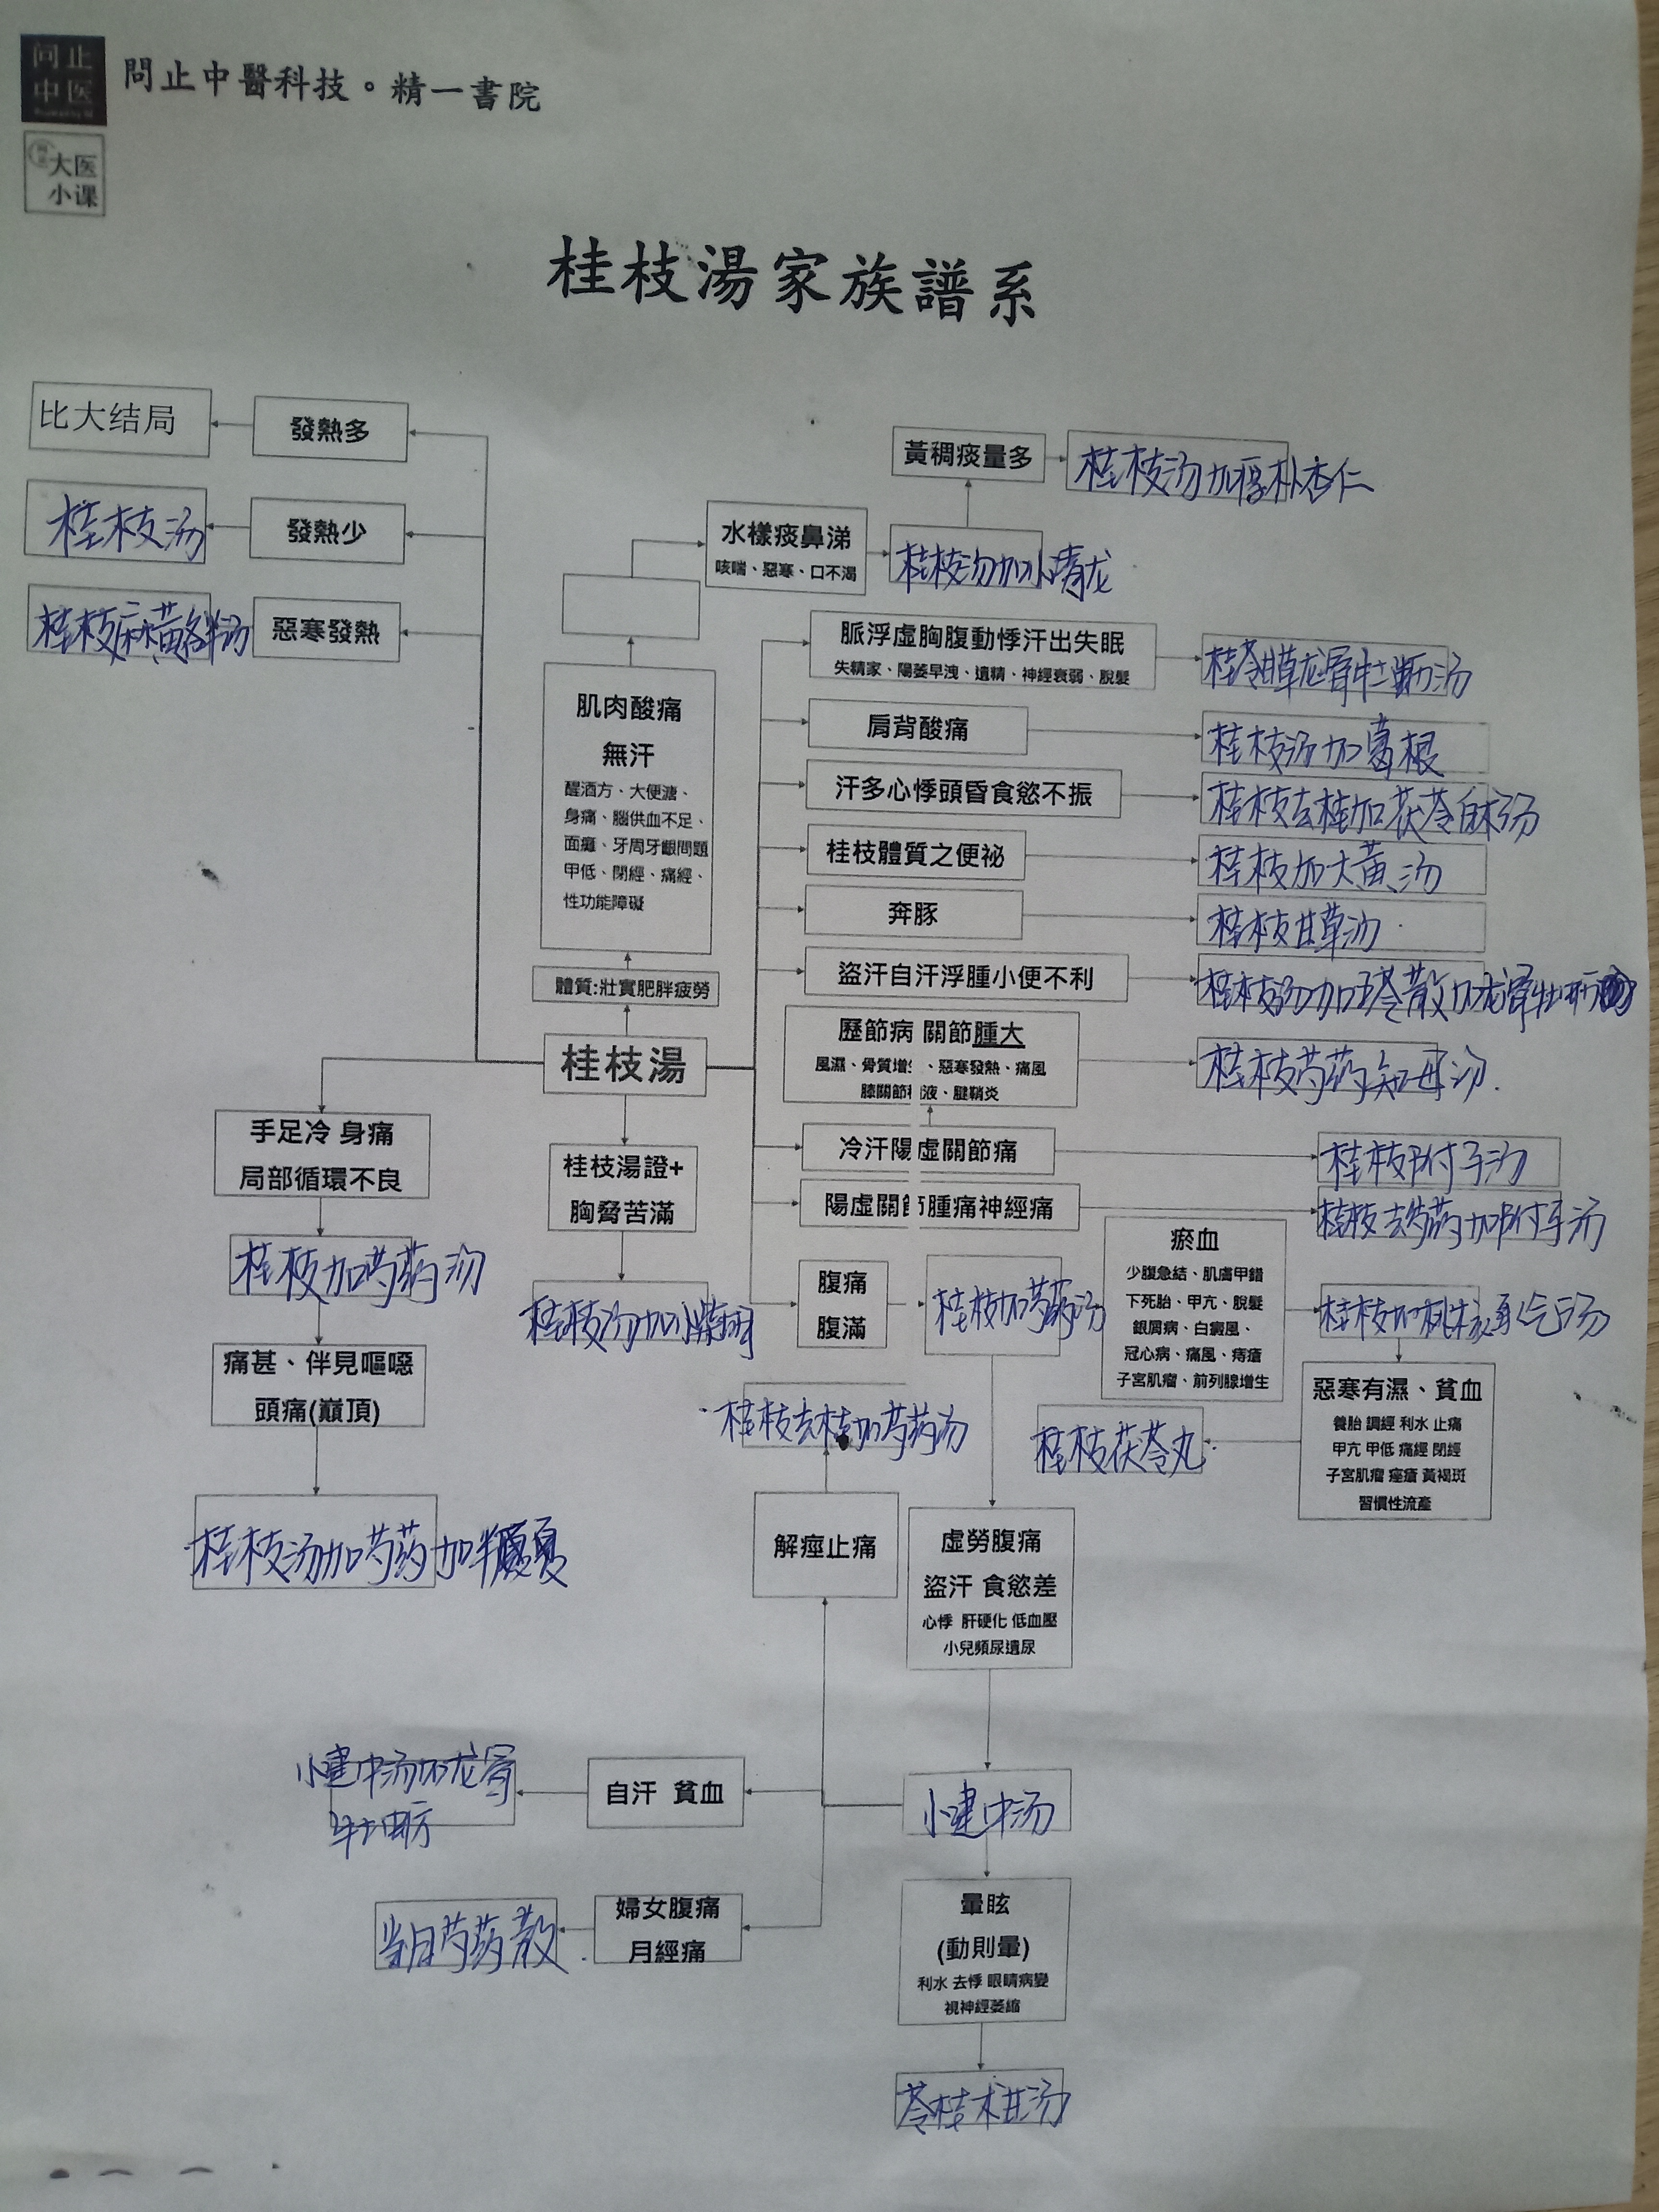 问止
中医
問止中醫科技。精一書院
大医
小课
桂枝湯家族譜系
比大结局
發熱多
桂枝汤
發熱少
桂枝麻黄各半汤
惡寒發熱
黃稠痰量多
桂枝汤加厚朴杏仁
水樣痰鼻涕
咳喘、惡寒、口不渴
桂枝汤加小青龙
肌肉酸痛
無汗
醒酒方、大便溏、
身痛、腦供血不足、
面癱、牙周牙齦問題
甲低、閉經、痛經、
性功能障礙
體質:壯實肥胖疲勞
桂枝湯
脈浮虛胸腹動悸汗出失眠
失精家、陽萎早洩、遺精、神經衰弱、脫髮
桂苓甘草龙骨牡蛎汤
肩背酸痛
桂枝汤加葛根
汗多心悸頭昏食慾不振
桂枝去桂加茯苓白术汤
桂枝體質之便祕
桂枝加大黄汤
奔豚
桂枝甘草汤
盜汗自汗浮腫小便不利
桂枝汤加五苓散加龙骨牡蛎
歷節病 關節腫大
風濕、骨質增生、惡寒發熱、痛風
膝關節積液、腱鞘炎
桂枝芍药知母汤
冷汗陽虛關節痛
桂枝附子汤
陽虛關節腫痛神經痛
桂枝去芍药加附子汤
手足冷 身痛
局部循環不良
桂枝加芍药汤
痛甚、伴見嘔噁
頭痛(巔頂)
桂枝汤加芍药加半夏
桂枝湯證+
胸脅苦滿
桂枝汤加小柴胡
腹痛
腹滿
桂枝加芍药汤
瘀血
少腹急結、肌膚甲錯
下死胎、甲亢、脫髮
銀屑病、白癜風、
冠心病、痛風、痔瘡
子宮肌瘤、前列腺增生
桂枝加桃核承气汤
惡寒有濕、貧血
養胎 調經 利水 止痛
甲亢 甲低 痛經 閉經
子宮肌瘤 痤瘡 黃褐斑
習慣性流產
桂枝茯苓丸
桂枝去桂加芍药汤
解痙止痛
虛勞腹痛
盜汗 食慾差
心悸 肝硬化 低血壓
小兒頻尿遺尿
小建中汤
自汗 貧血
小建中汤加龙骨
牡蛎
婦女腹痛
月經痛
当归芍药散
暈眩
(動則暈)
利水 去悸 眼睛病變
視神經萎縮
苓桂术甘汤